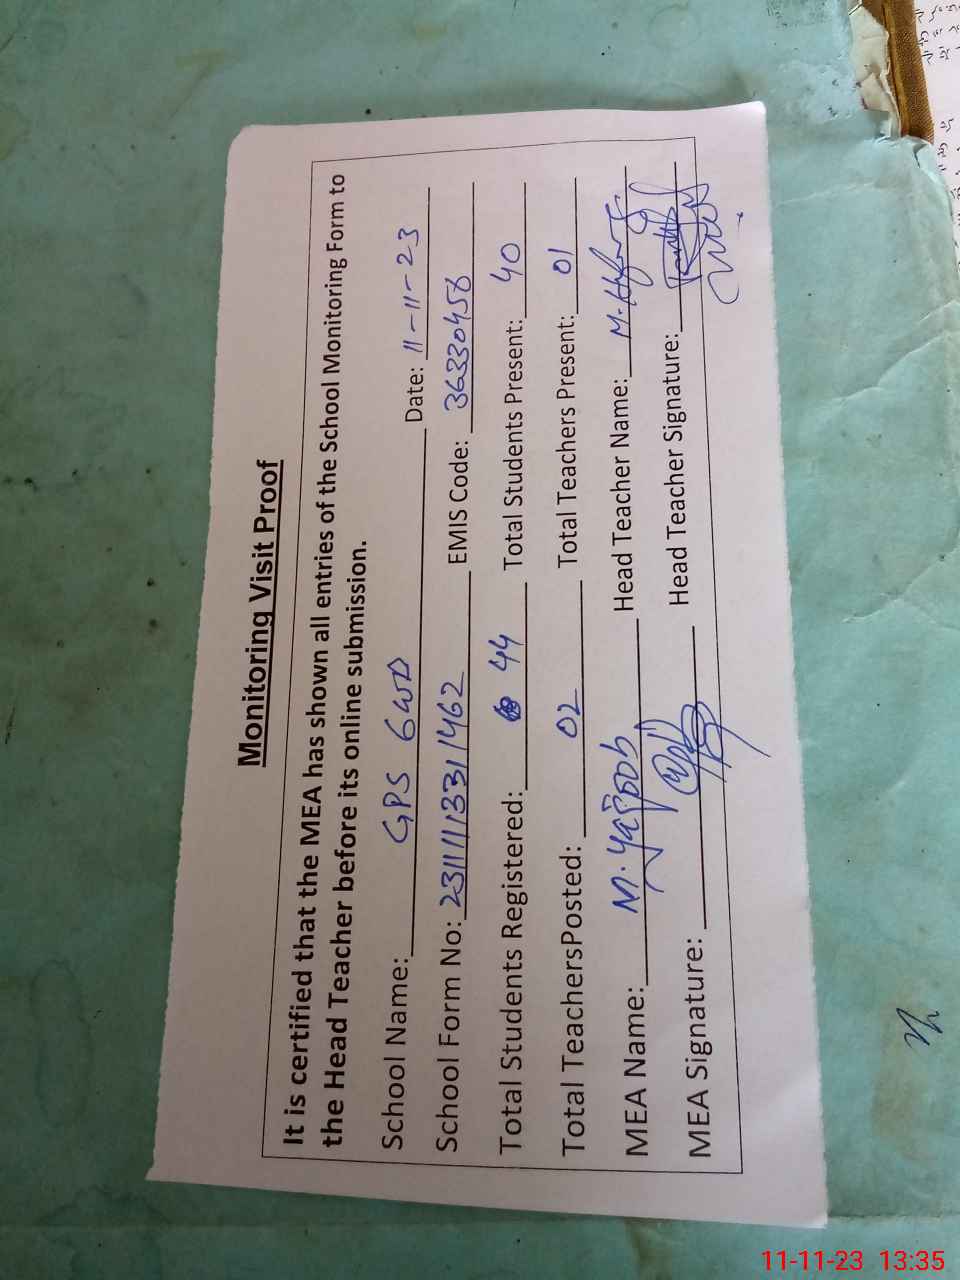 Monitoring Visit Proof
It is certified that the MEA has shown all entries of the School Monitoring Form to
the Head Teacher before its online submission.
School Name: GPS 6WD Date: 11-11-23
School Form No: 231111331462 EMIS Code: 36330456
Total Students Registered: 44 Total Students Present: 40
Total TeachersPosted: 02 Total Teachers Present: 01
MEA Name: M. Yaqoob Head Teacher Name: M.
MEA Signature: Head Teacher Signature:
11-11-23 13:35